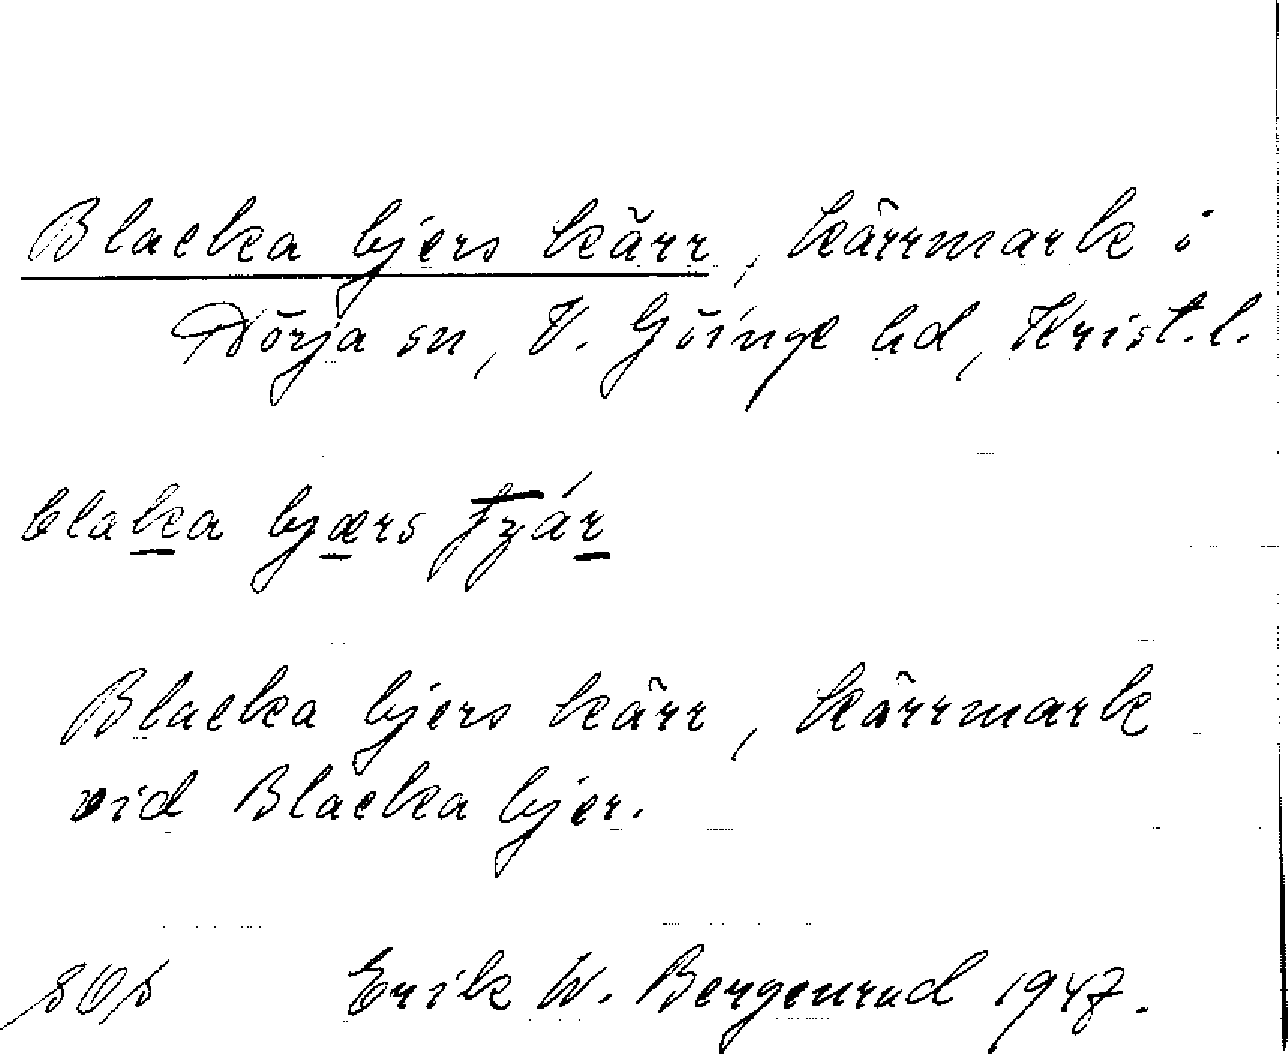 Blacka bjers kärr, kärrmark i
Nörja sn, V. Göinge hd, Krist.l.
blaka bjærs
Blacka bjers kärr, kärrmark
vid Blacka bjer.
Erik W. Bergenrud 1947.